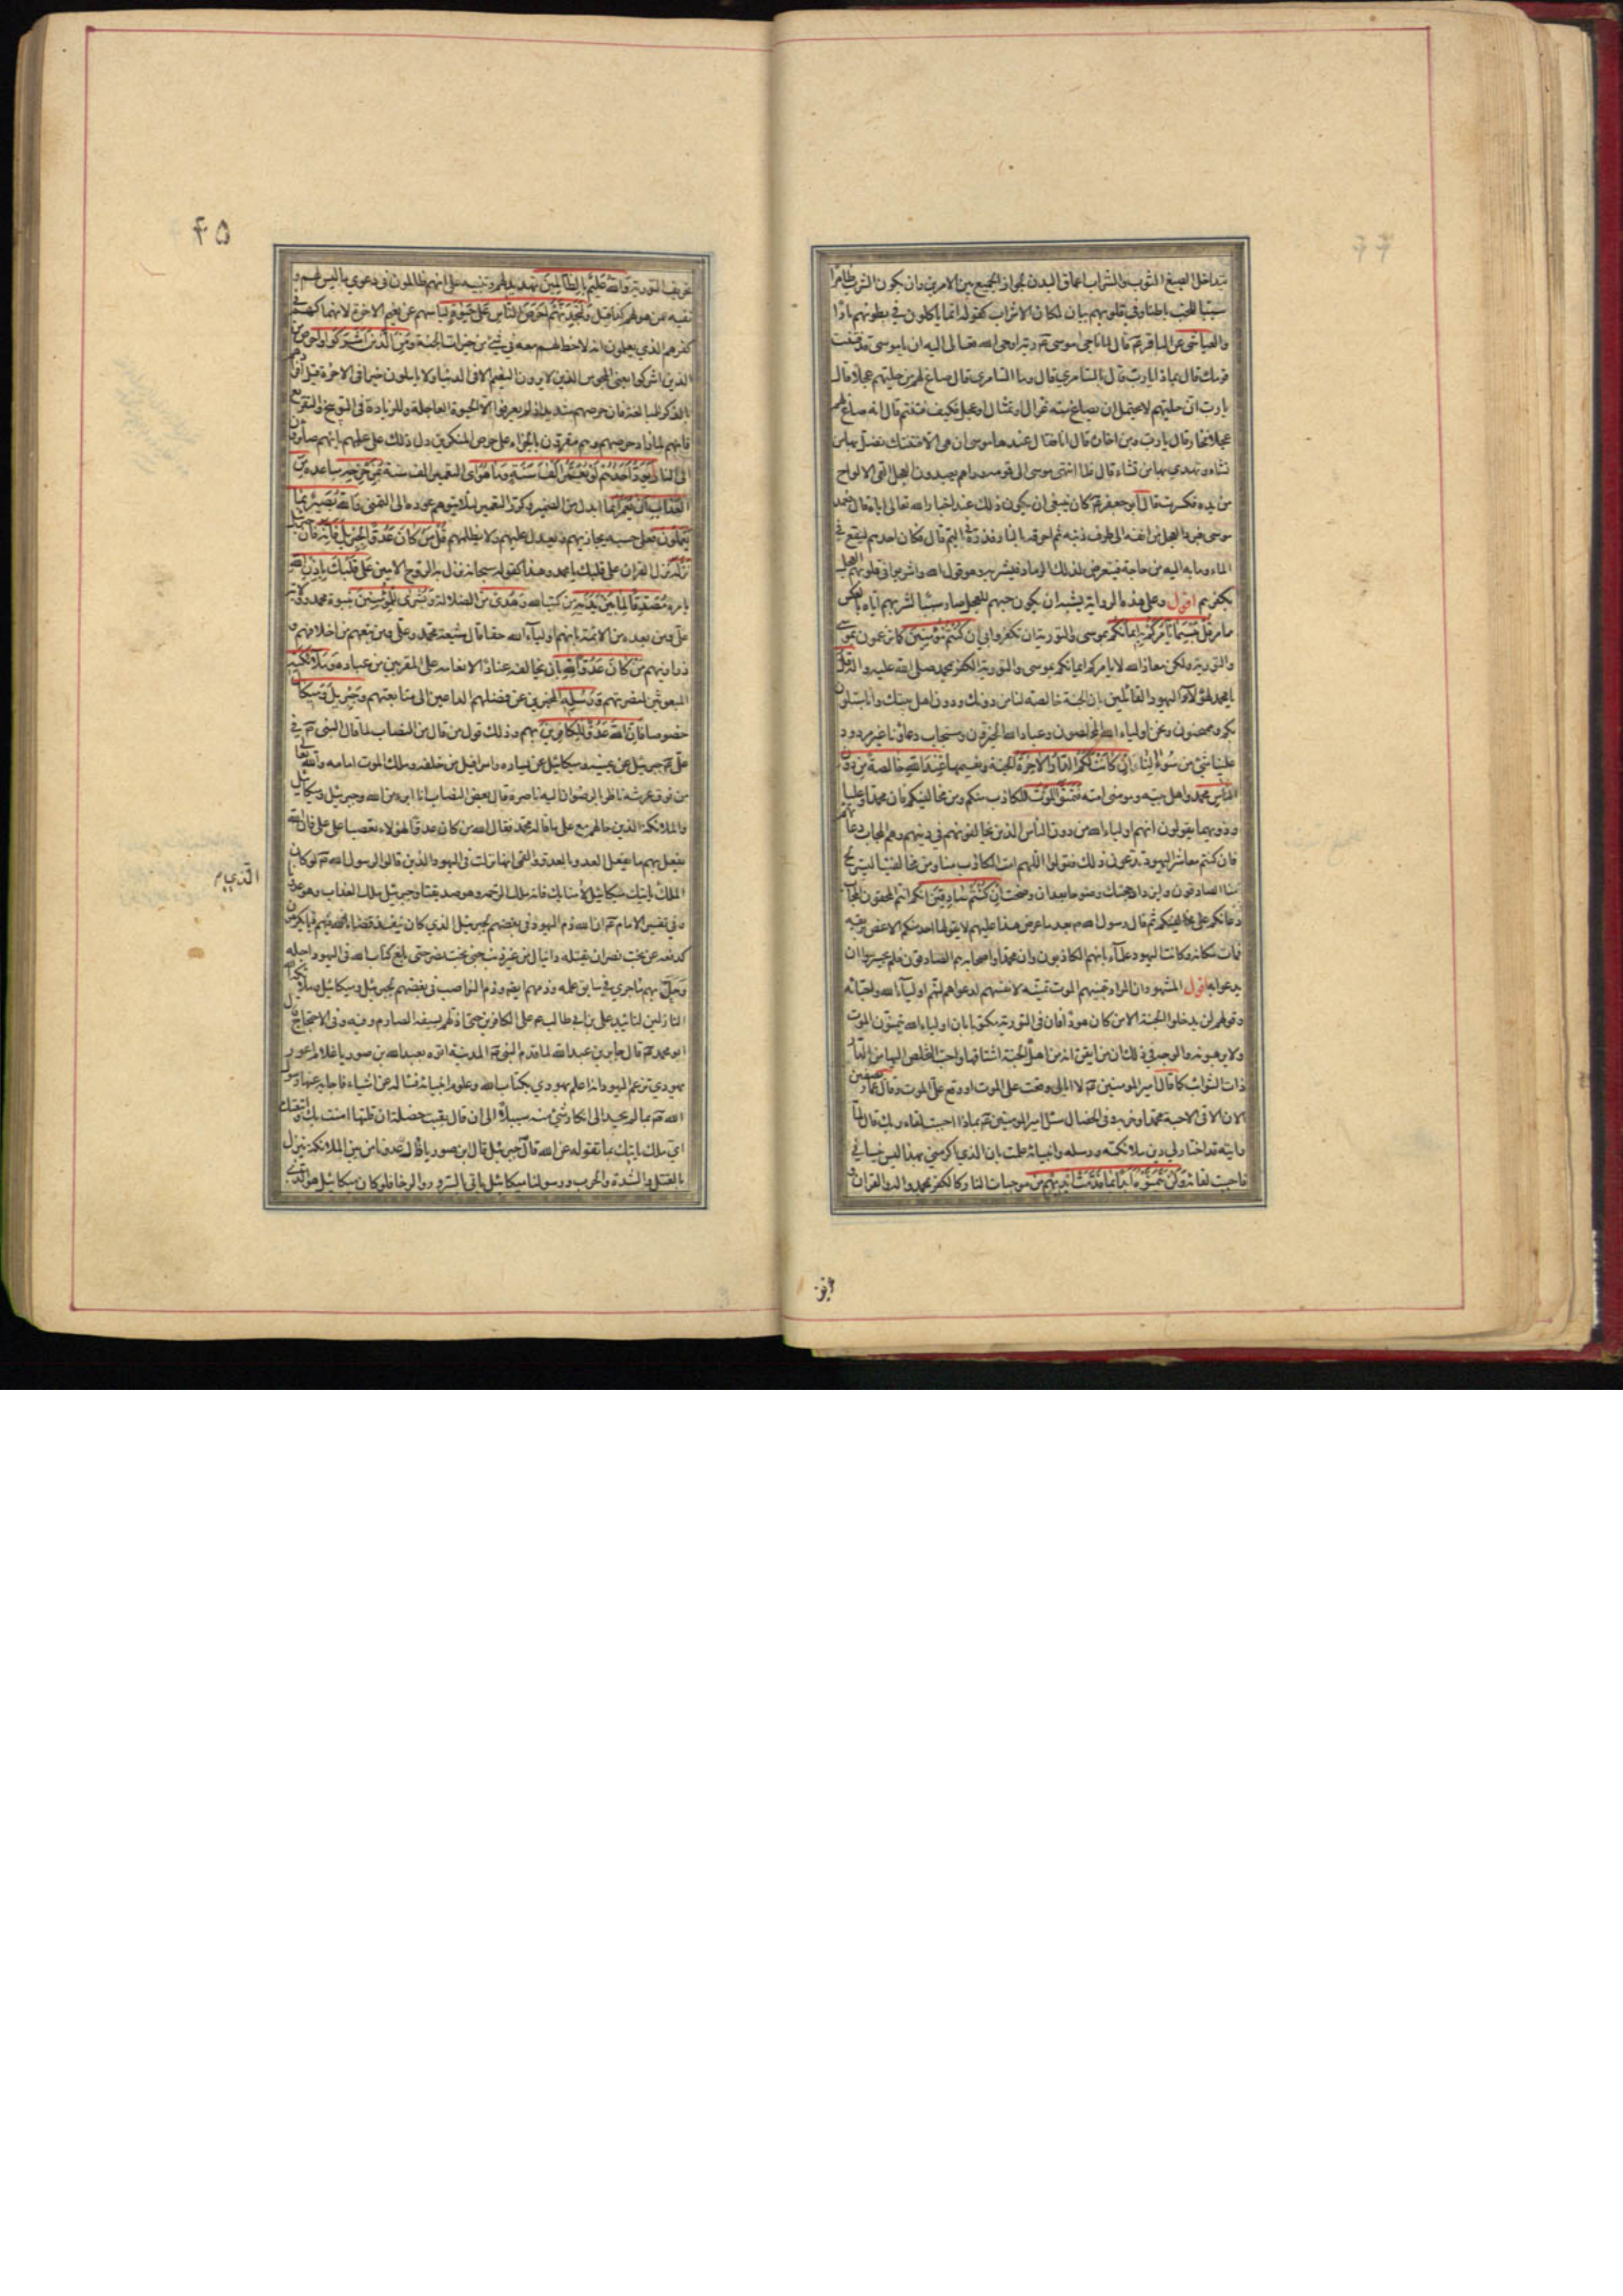 يتداخل الصبغ الثوب والشراب اعماق البدن يجوز الجمع بين الامرين وان يكون الشرب ظاهرا
سببا لحب باطنا وفي قلوبهم بيان لمكان الاشراب كقوله انما ياكلون في بطونهم نارا
والعياشي عن الباقر قال لما ناجى موسى ربه اوحى الله تعالى اليه ان يا موسى قد فتنت
قومك قال بماذا يا رب قال بالسامري قال وما السامري قال صاغ لهم من حليهم عجلا قال
يا رب ان حليهم لا يحتمل ان يصاغ منه غزال او تمثال او عجل فكيف فتنتهم قال انه صاغ لهم
عجلا فخار قال يا رب ومن اخاره قال انا فقال عندها موسى ان هي الا فتنتك تضل بها من
تشاء وتهدي بها من تشاء قال فلما انتهى موسى الى قومه وراهم يعبدون العجل القى الالواح
من يده فكسرت قال ابو جعفر كان ينبغي ان يكون ذلك عند اخبار الله تعالى اياه قال فعمد
موسى فبرد العجل من انفه الى طرف ذنبه ثم احرقه بالنار فذره في اليم قال فكان احدهم ليقع في
الماء وما به اليه من حاجة فيتعرض لذلك الرماد فيشربه وهو قول الله واشربوا في قلوبهم العجل
بكفرهم اقول وعلى هذه الرواية يشبه ان يكون حبهم للعجل صار سببا لشربهم اياه بالعكس
مما مر قل بئسما يأمركم به ايمانكم بموسى والتورية ان تكفروا بي ان كنتم مؤمنين كما تزعمون بموسى
والتورية ولكن معاذ الله لا يامركم ايمانكم بموسى والتورية الكفر بمحمد صلى الله عليه واله قل
يا محمد لهؤلاء اليهود القائلين بان الجنة خالصة لنا من دونك ودون اهل بيتك وانا مبتلون
بكم وممتحنون ونحن اولياء الله المخلصون وعباد الله الخيرون ومستجاب دعاؤنا غير مردود
علينا شيء من سؤالنا ان كانت لكم الدار الاخرة الجنة ونعيمها عند الله خالصة من دون
الناس محمد واهل بيته ومؤمني امته فتمنوا الموت للكاذب منكم ومن مخالفيكم فان محمدا وعليا
وذويهما يقولون انهم اولياء الله من دون الناس الذين يخالفونهم في دينهم وهم المجاب دعاؤهم
فان كنتم معاشر اليهود تدعون ذلك فقولوا اللهم امت الكاذب منا ومن مخالفينا ليستريح
منا الصادقون وليزداد حجتك وضوحا بعد ان وضحت ان كنتم صادقين انكم انتم المحقون المجاب
دعائكم على مخالفيكم ثم قال رسول الله بعد ما عرض هذا عليهم لا يقولها احد منكم الا غص بريقه
فمات مكانه وكانت اليهود علماء بانهم الكاذبون وان محمدا واصحابه هم الصادقون فلم يجسروا ان
يدعوا به اقول المشهود ان المراد تمنيهم الموت تمنيه لانفسهم لدعواهم انهم اولياء الله واحباؤه
وقولهم لن يدخل الجنة الا من كان هودا فان في التورية مكتوبا بان اولياء الله يتمنون الموت
ولا يرهبونه والوجه في ذلك ان من ايقن انه من اهل الجنة اشتاقها واحب التخلص اليها من الدار
ذات الشوائب كما قال امير المؤمنين لا ابالي وقعت على الموت او وقع علي الموت وقال عمار بصفين
الان الاقي الاحبة محمدا وحزبه وفي الخصال سئل امير المؤمنين بماذا احببت لقاء ربك قال لما
رايته قد اختار لي دين ملائكته ورسله وانبيائه علمت بان الذي اكرمني بهذا ليس ينساني
فاحببت لقائه ولن يتمنوه ابدا بما قدمت ايديهم من موجبات النار كالكفر بمحمد واله والقران و
٤٥
تحريف التورية والله عليم بالظالمين تهديد لهم وتنبيه على انهم ظالمون في دعوى ما ليس لهم و
نفيه عمن هو لهم كذا قيل ولتجدنهم احرص الناس على حيوة لياسهم عن نعيم الاخرة لانهماكهم في
كفرهم الذي يعلمون انه لا حظ لهم معه في شيء من خيرات الجنة ومن الذين اشركوا واحرص من
الذين اشركوا يعني المجوس الذين لا يرون النعيم الا في الدنيا ولا ياملون خيرا في الاخرة قيل افردهم
بالذكر للمبالغة فان حرصهم شديد اذ لم يعرفوا الا الحيوة العاجلة وللزيادة في التوبيخ والتقريع
فانهم لما زاد حرصهم وهم مقرون بالجزاء على حرص المنكرين دل ذلك على علمهم بانهم صائرون
الى النار يود احدهم لو يعمر الف سنة وما هو اي التعمير الف سنة بمزحزحه مباعده من
العذاب ان يعمر انما ابدل من الضمير وكرر التعمير لئلا يتوهم عوده الى التمني والله بصير بما
يعملون فعلى حسبه يجازيهم ويعدل عليهم ولا يظلمهم قل من كان عدوا لجبريل فانه فان جبريل
نزله نزل القران على قلبك يا محمد وهذا كقوله سبحانه نزل به الروح الامين على قلبك باذن الله
بامره مصدقا لما بين يديه من كتب الله وهدى من الضلالة وبشرى للمؤمنين بنبوة محمد وولاية
علي ومن بعده من الائمة بانهم اولياء الله حقا اذا ماتوا على موالاتهم
ذواتهم من كان عدوا لله بان يخالفه عنادا لانعامه على المقربين من عباده وملائكته
المبعوثين لنصرتهم ورسله المخبرين عن فضلهم الداعين الى متابعتهم وجبريل وميكال
خصوصا فان الله عدو للكافرين بهم وذلك قول من قال من النصاب لما قال النبي في
علي جبرئيل عن يمينه وميكائيل عن يساره واسرافيل من خلفه وملك الموت امامه والله تعالى
من فوق عرشه ناظر بالرضوان اليه ناصره قال بعض النصاب انا ابرء من الله وجبرئيل وميكائيل
والملائكة الذين حالهم مع علي ما قاله محمد فقال الله من كان عدوا لهؤلاء تعصبا على علي فان الله
يفعل بهم ما يفعل العدو بالعدو والقمي انها نزلت في اليهود الذين قالوا لرسول الله لو كان
الملك ياتيك ميكائيل لامنا بك فانه ملك الرحمة وهو صديقنا وجبرئيل ملك العذاب وهو عدونا
وفي تفسير الامام ان الله ذم اليهود في بغضهم لجبرئيل الذي كان ينفذ قضاء الله فيهم فيما يكرهون
كدفعه عن بخت نصر ان يقتله دانيال من غير ذنب جنى بخت نصر حتى بلغ كتاب الله في اليهود اجله
وحل بهم ما جرى في سابق علمه وذمهم ايضا وذم النواصب في بغضهم لجبرئيل وميكائيل وملائكة الله
النازلين لتائيد علي بن ابي طالب على الكافرين حتى اذلهم بسيفه الصارم وفيه وفي الاحتجاج قال
ابو محمد قال جابر بن عبدالله لما قدم النبي المدينة اتوه بعبدالله بن صوريا غلام اعور
يهودي تزعم اليهود انه اعلم يهودي بكتاب الله وعلوم انبيائه فساله عن اشياء فاجابه عنها رسول
الله بما لم يجد الى انكار شيء منه سبيلا الى ان قال بقيت خصلة ان قلتها امنت بك واتبعتك
اي ملك ياتيك بما تقوله عن الله قال جبرئيل قال ابن صوريا ذاك عدونا من بين الملائكة ينزل
بالقتل والشدة والحرب ورسولنا ميكائيل ياتي بالسرور والرخا فلو كان ميكائيل هو الذي
الذي